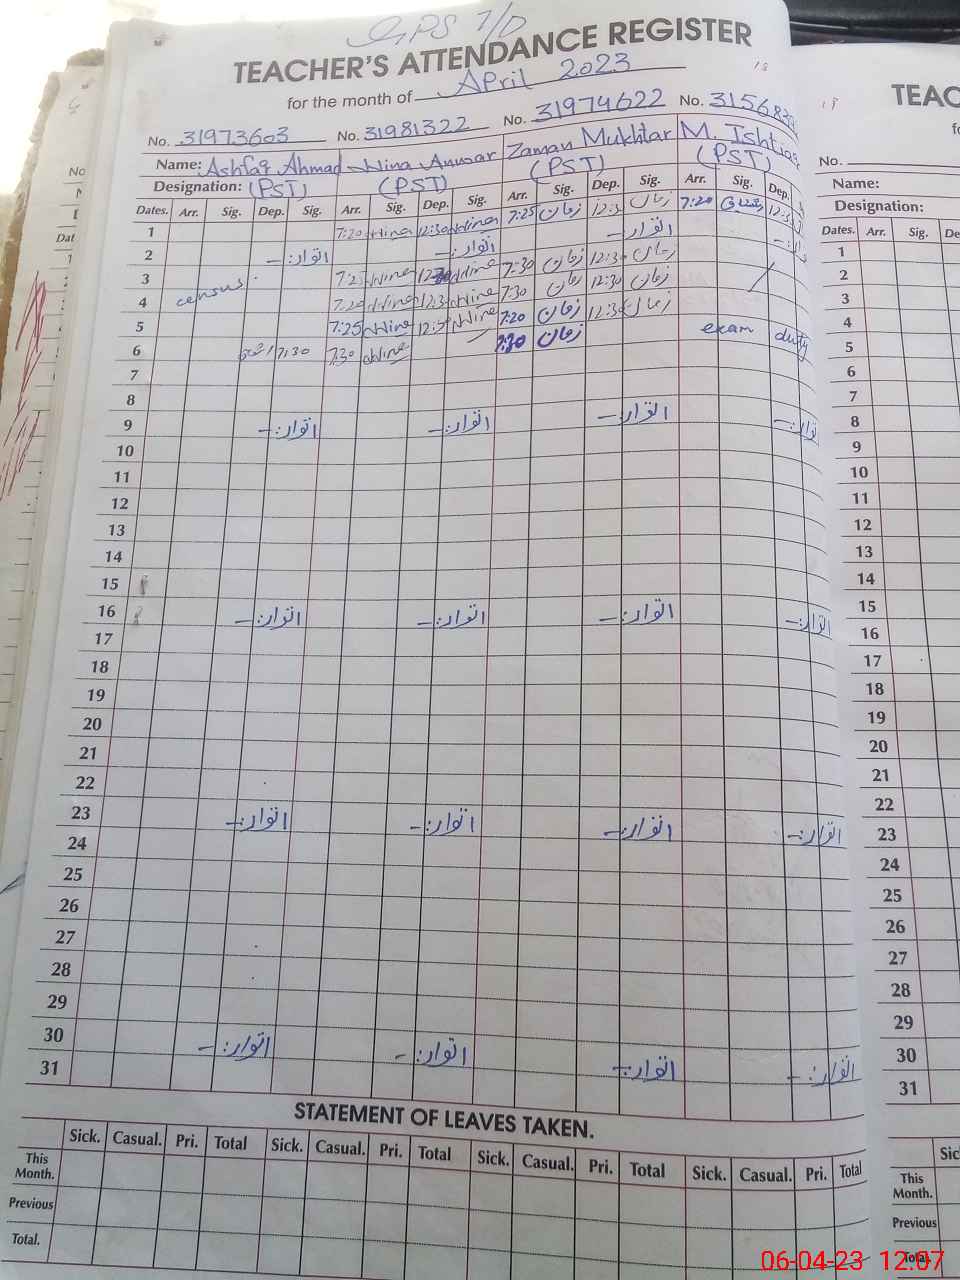 GPS T/D
TEACHER'S ATTENDANCE REGISTER
for the month of April 2023
No. 31973603 No. 31981322 No. 31974622 No. 3156
Name: Ashfaq Ahmad Nina Anwar Zaman Mukhtar M. Ishtiaq
Designation: (PST) (PST) (PST) (PST)
Dates. Arr. Sig. Dep. Sig. Arr. Sig. Dep. Sig. Arr. Sig. Dep. Sig. Arr. Sig. Dep.
1 7:20 Nina 12:30 Nina 7:25 زمان 12:3 زمان 7:20 12:3
2 اتوار:- اتوار:- اتوار:-
3 census 7:25 Nina Nina 7:30 زمان 12:30 زمان
4 7:20 Nina 12:30 Nina 7:30 زمان 12:30 زمان
5 7:25 Nina 12:30 Nina 7:20 زمان 12:30 زمان exam duty
6 7:30 7:30 Nina 7:30 زمان
7
8
9 اتوار:- اتوار:- اتوار:-
10
11
12
13
14
15
16 اتوار:- اتوار:- اتوار:- اتوار:-
17
18
19
20
21
22
23 اتوار:- اتوار:- اتوار:- اتوار:-
24
25
26
27
28
29
30 اتوار:- اتوار:- اتوار:- اتوار:-
31
STATEMENT OF LEAVES TAKEN.
Sick. Casual. Pri. Total Sick. Casual. Pri. Total Sick. Casual. Pri. Total Sick. Casual. Pri. Total
This Month.
Previous
Total.
TEAC
No.
Name:
Designation:
Dates. Arr. Sig. De
1
2
3
4
5
6
7
8
9
10
11
12
13
14
15
16
17
18
19
20
21
22
23
24
25
26
27
28
29
30
31
Sic
This Month.
Previous
Total.
06-04-23 12:07